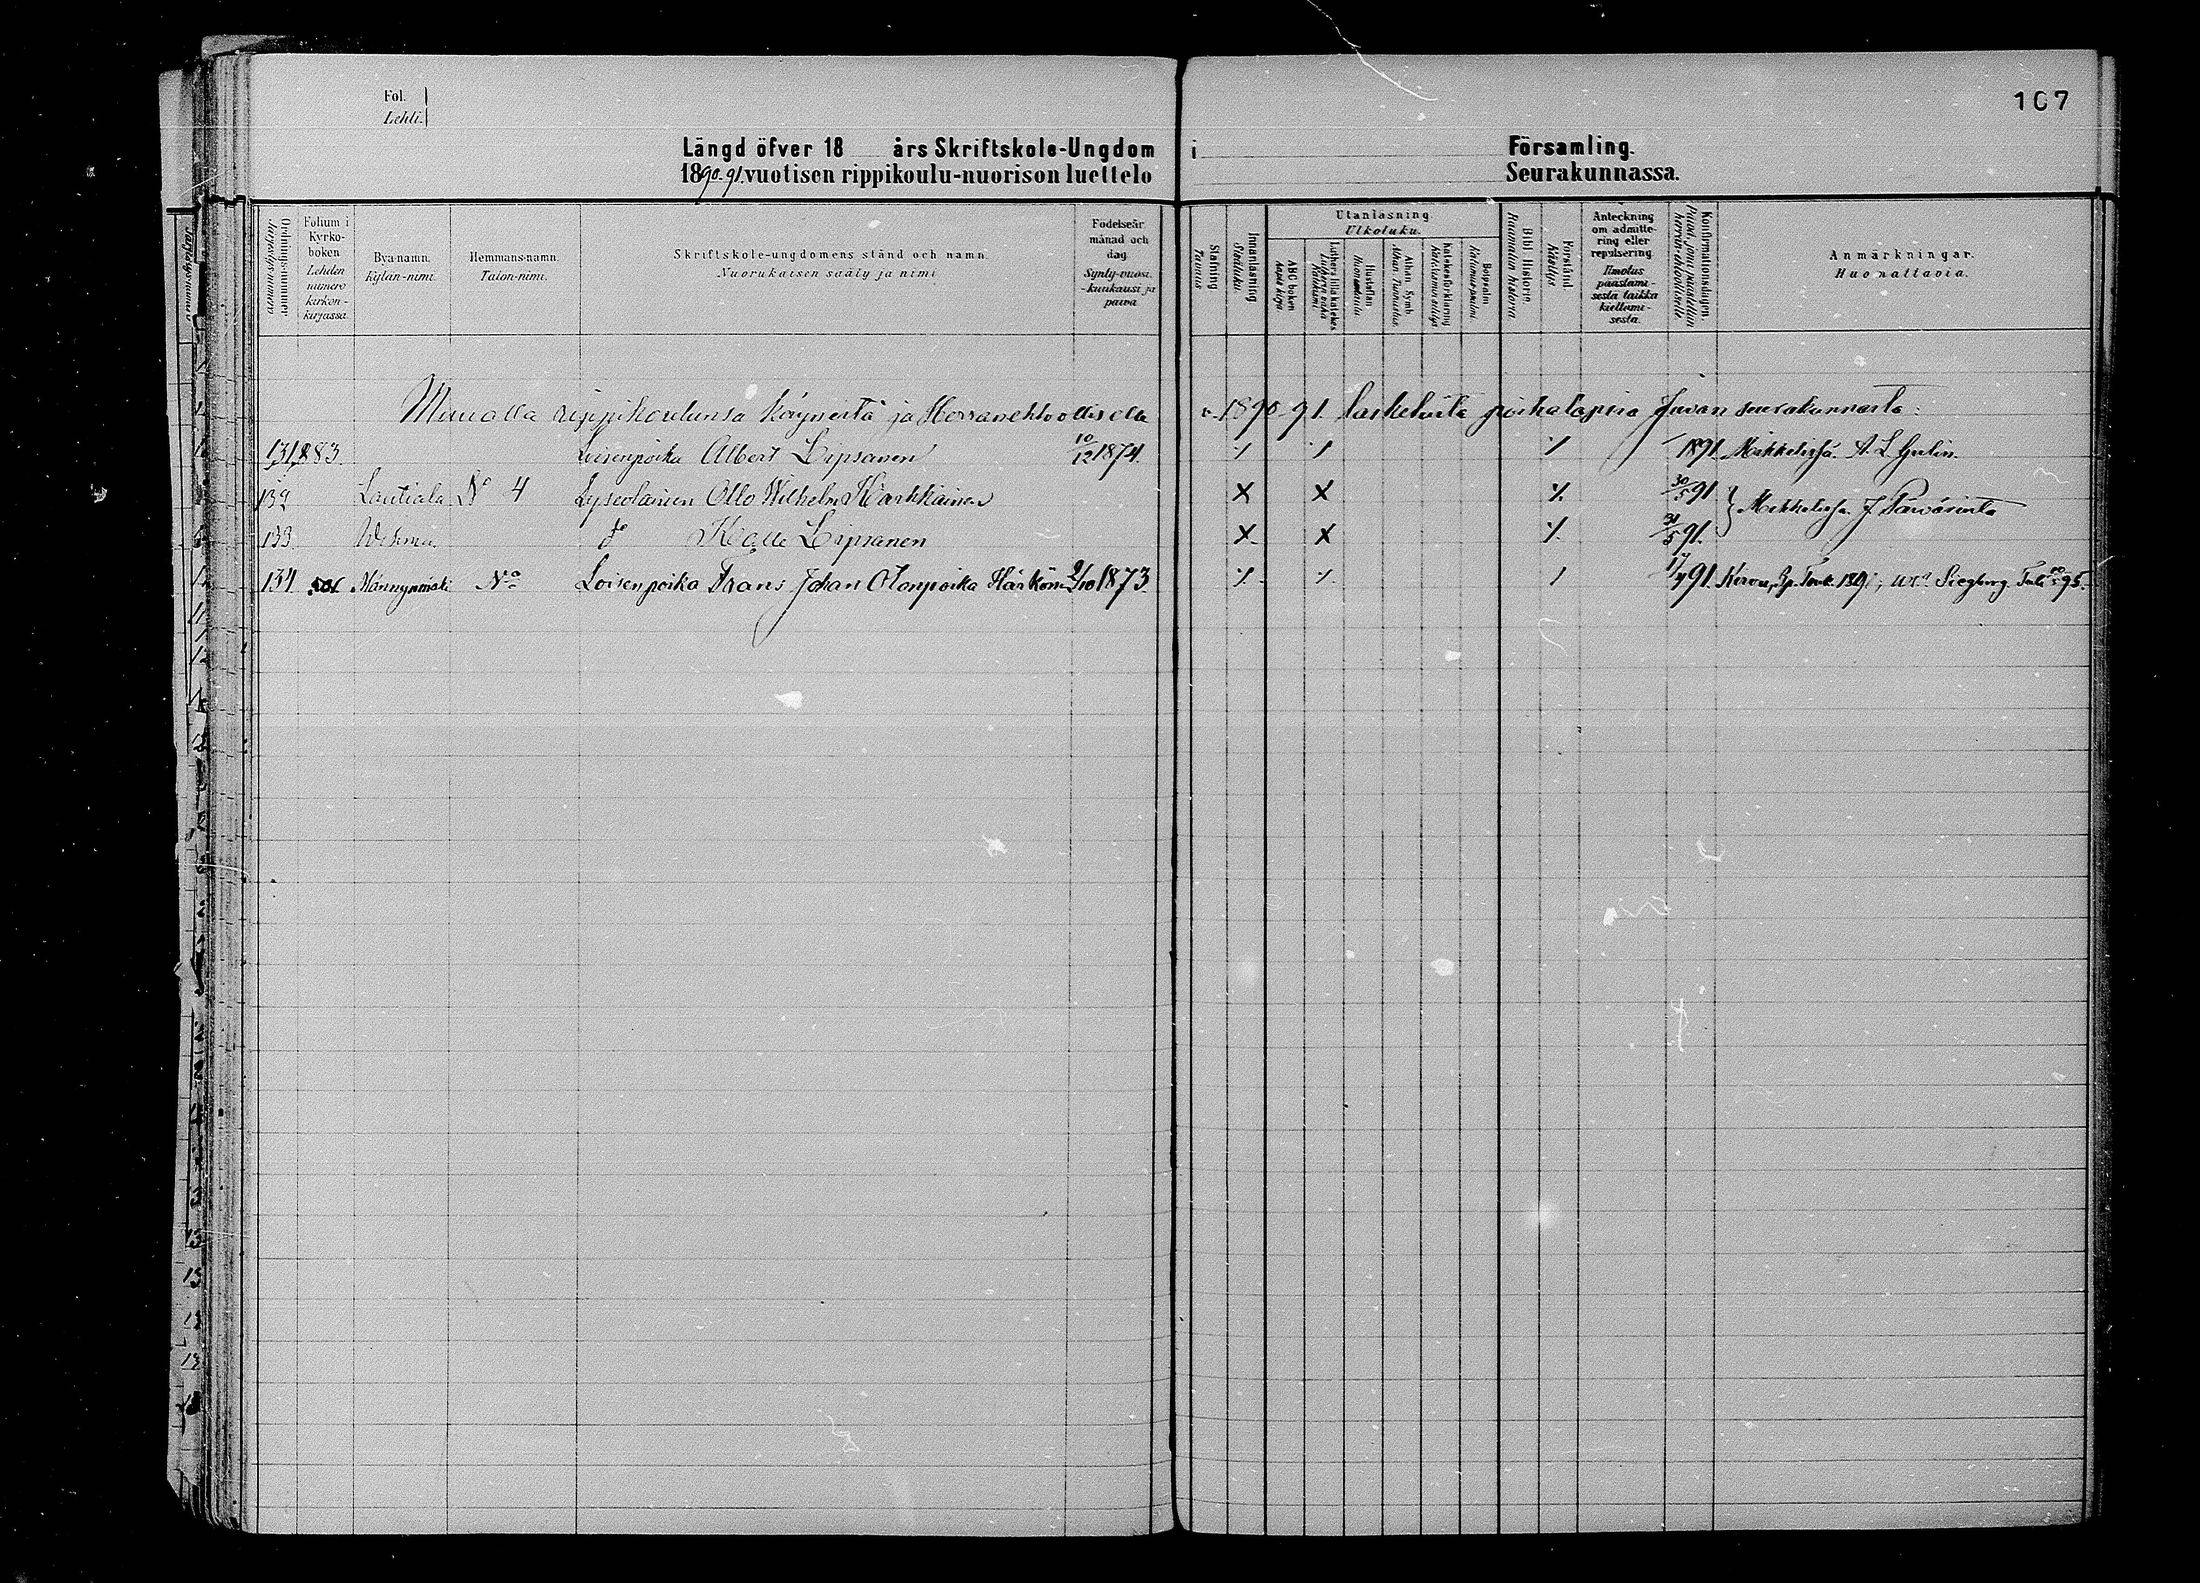 Fol.
Lehti.
107
Längd öfver 18 års Skriftskole-Ungdom i Församling.
1890-91. vuotisen rippikoulu-nuorison luettelo Seurakunnassa.
Ordnings-nummer. Järjestys-numero.
Folium i Kyrko-boken
Lehden numero kirkon-kirjassa.
Bya-namn.
Kylän-nimi.
Hemmans-namn.
Talon-nimi.
Skriftskole-ungdomens stånd och namn.
Nuorukaisen sääty ja nimi
Födelseår månad och dag.
Synty-vuosi. -kuukausi ja päivä
Stafning Tavaus
Innanläsning Sisäluku
Utanläsning.
Ulkoluku.
ABC boken Aapis kirja
Luthers lilla katekes Lutherin vähä Katekismi
Hustaflan Huoneentaulu
Athan. Symb. Athan. Tunnustus.
Katekesförklaring Katekismon selitys
Botpsalm. Katumuspsalmi.
Bibl. Historie Raamatun historia.
Förstånd Käsitys.
Anteckning om admittering eller repulsering.
Ilmotus päästämisestä taikka kieltämisestä.
Konfirmationsdagen.
Anmärkningar.
Huomattavia.
Muualla rippikoulunsa käyneitä ja Herranehtoollisella v. 1890-91 laskettuita poikalapsia Juvan seurakunnasta:
131. 883. Loisenpoika Albert Lipsanen 10/12 1874. 1891 Mikkelissä. A. L. Gulin.
132 Lautiala No 4 Lyseolainen Otto Wilhelm Karhkainen 30/5 91
Mikkelissä J.
133 do Kalle Lipsanen 31/5 91.
134 Männynmäki No Loisenpoika Frans Johan Olonpoika Härkönen 2/10 1873 17/4 91.